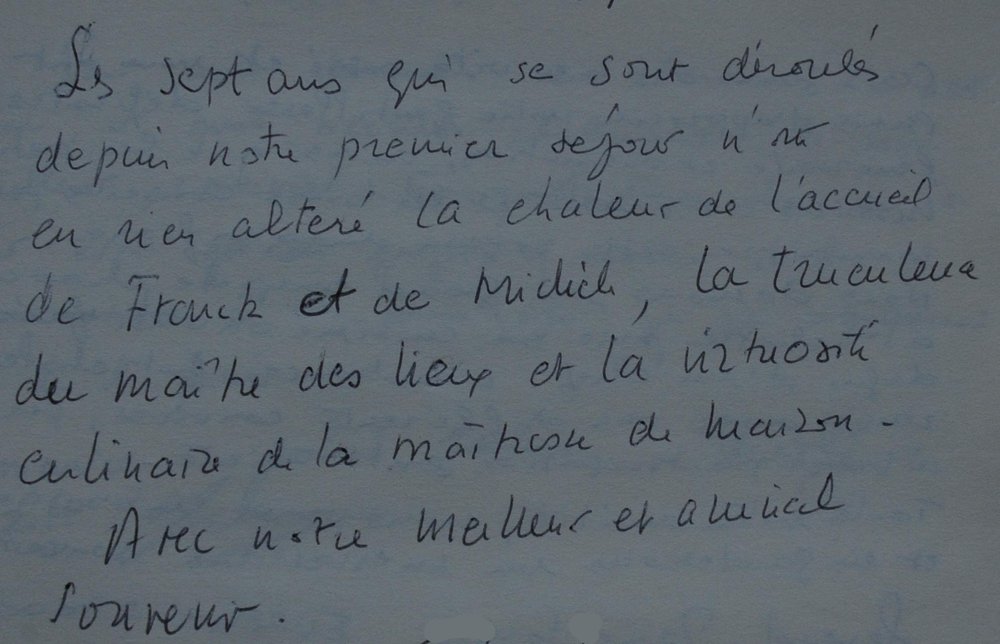 Les sept ans qui se sont déroulés
depuis notre premier séjour n'ont
en rien altéré la chaleur de l'accueil
de Franck et de Michèle, la truculence
du maître des lieux et la virtuosité
culinaire de la maîtresse de maison.
Avec notre meilleur et amical
souvenir.